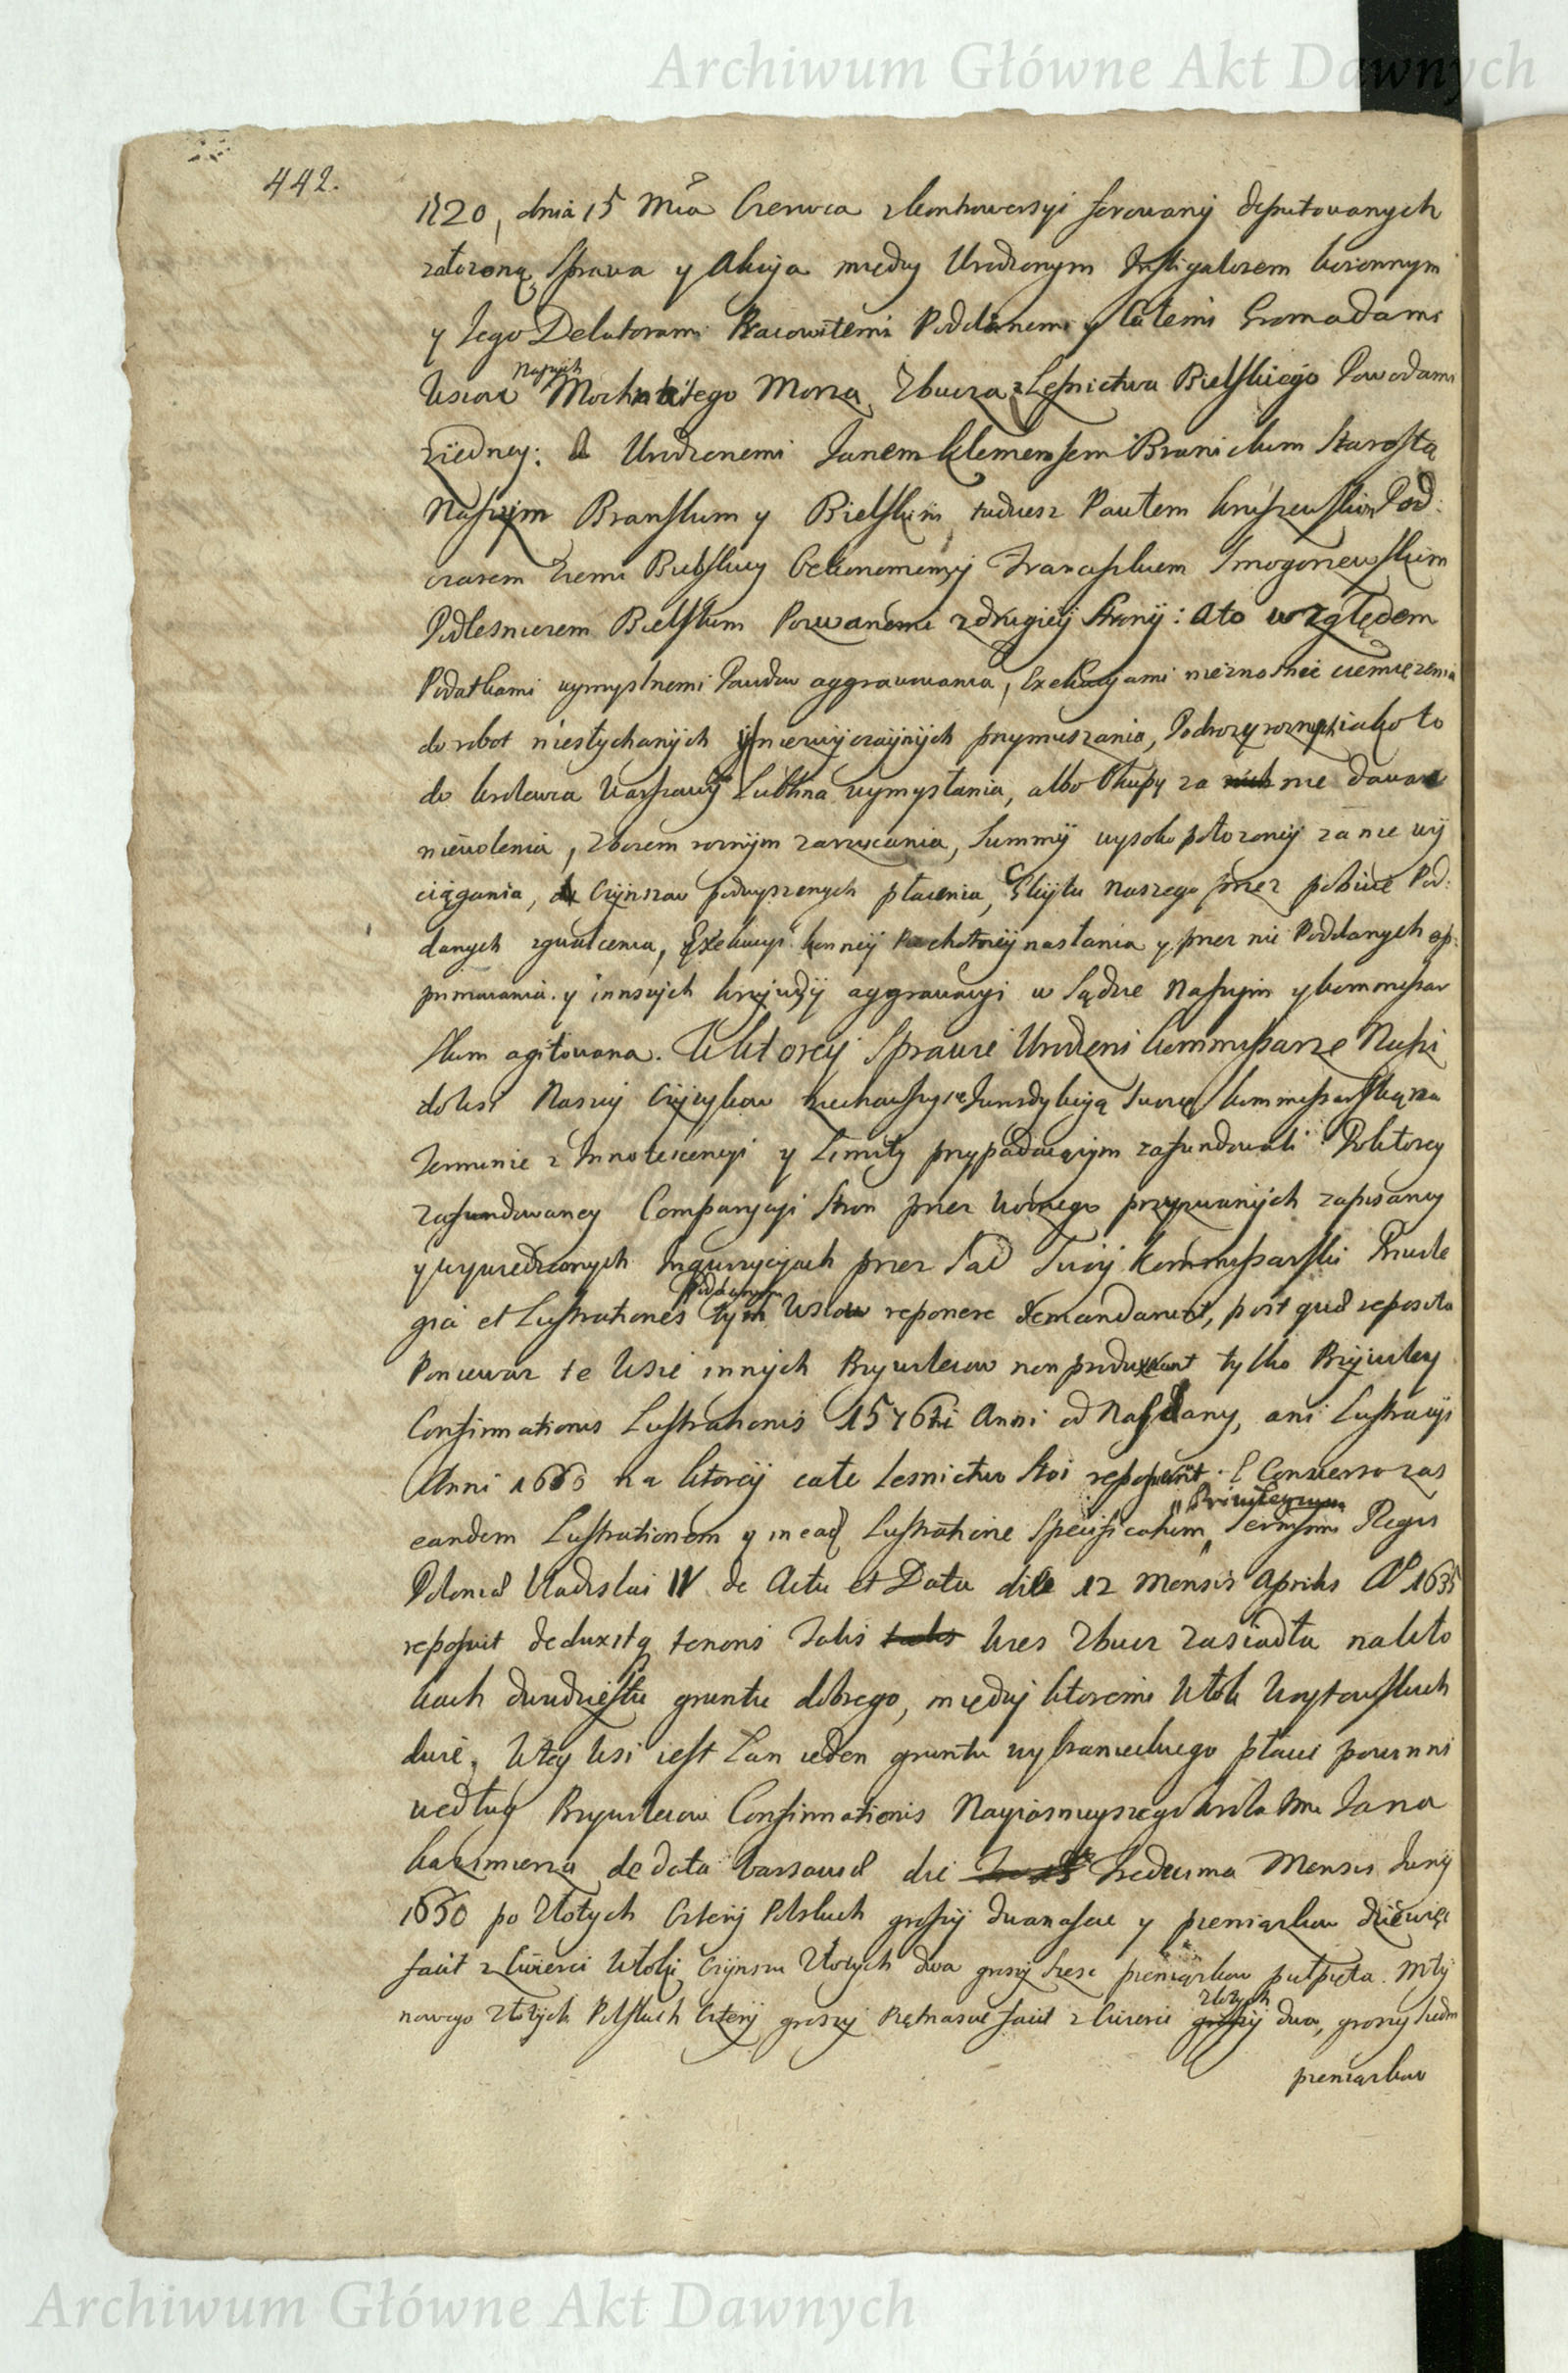 Archiwum Główne Akt Dawnych
442.
1720, dnia 15 Mca Czerwca z kontrowersyi ferowany deputowanych
założoną, Sprawa y Akcya między Urodzonym Instigatorem koronnym
y Jego Delatorami Pracowitemi Poddanemi y całemi Gromadami
Wsiow Naszych Mochnatego Morza, Zbucza z Leśnictwa Bielskiego Powodami
z iedney: A Urodzonemi Janem Klemensem Branickim Starostą
Naszym Branskim y Bielskim, tudziesz Pawłem Kruszewskim Pod:
czaszem Ziemi Bielskiey Oekonomem y Franciszkiem Smogorzewskim
Podlesniczem Bielskim Pozwanemi z drugiey Strony: Ato względem
Podatkami wymyslnemi Powodow aggrawowania, Exekucyami nieznosnie ciemiężenia
do robot niesłychanych y nierwyczaynych przymuszania, Podroży roznych iako to
do Krolewca Warszawy Lublina wymysłania, albo Okupy za nie dawac
niewolenia, Zbozem roznym zarzucania, Summy wysoko położoney za nie wy
ciągania, Czynszow podwyszonych płacenia, Gleytu Naszego przez pobicie Pod:
danych zgwałcenia, Exekucyi konney Piechotney nasłania y przez nie Poddanych op:
primowania y innszych krzywdy aggrawacyi w Sądzie Naszym y kommissar
skim agitowana. W ktorey Sprawie Urodzeni kommissarze Nasi
doksi Naszey Czyżykow ziechawszy się Jurisdykcyą Swoię kommissarską na
Terminie z Innotescencyi y Limity przypadaiącym zafundowali Poktorey
zafundowaney Comparycyi Stron przez Woznego przyzwanych zapisaney
y wywiedzionych Inquizycyach przez Sąd Swoy kommissarski Privile
gia et Lustrationes Poddanym tym Wsiow reponere demandarunt, post quod reposita
Poniewaz te Wsie innych Przywileiow non produxerunt tylko Przywiley
Confirmationis Lustrationis 1576ti Anni od Nas Dany, ani Lustracyi
Anni 1660 na ktorey całe Lesnictwo stoi reposuerunt. E Converso zas
eandem Lustrationem y in eadem Lustratione Specificatum, Privilegium Sermissimi Regis
Poloniae Vladislai IV de Actu et Data die 12 Mensis Aprilis Ao 1635
reposuit deduxitq tenoris Talis talis Wies Zbucz zasiadła na Wło
kach dwudziestu gruntu dobrego, między ktoremi Włok Woytowskich
dwie, W tey Wsi iest Łan ieden gruntu wybranieckiego płacic powinni
według Przywileiow Confirmationis Nayiasnieyszego Krola Jmci Jana
Kazimierza de data Varsaviae die tredecima Mensis Juny
1650 po Złotych Cztery Polskich groszy dwanascie y pieniązkow dziewięc
facit z Cwierci Włoki Czynszu Złotych dwa groszy szesc pieniązkow pułpięta. Mły
nowego Złotych Polskich Cztery groszy Piętnascie facit z Cwierci groszy Złotych dwa, groszy siedm
pieniązkow
Archiwum Główne Akt Dawnych